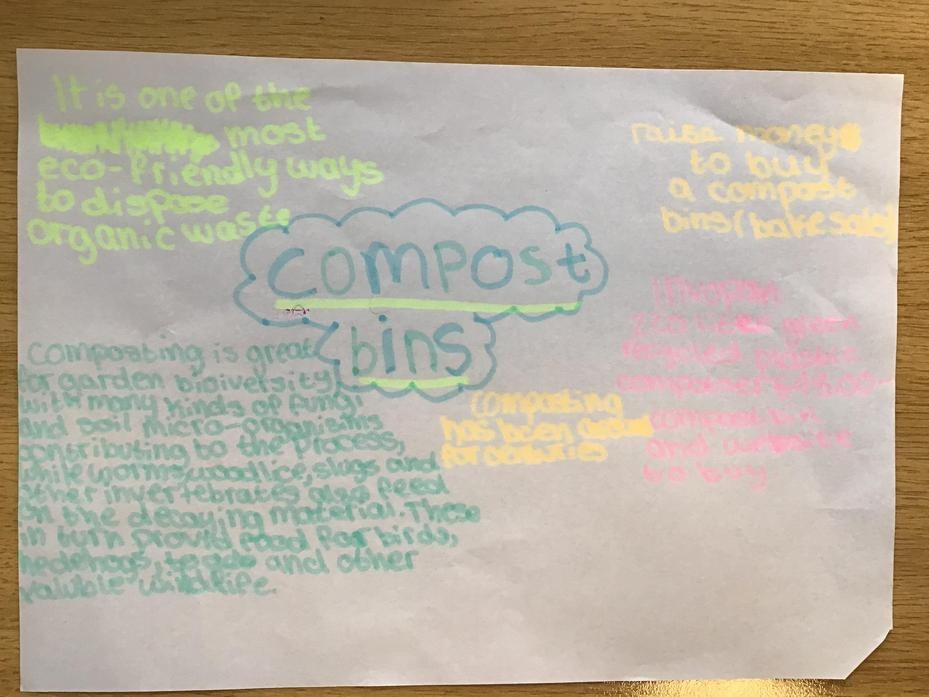 It is one of the
most
eco-friendly ways
to dispose
organic waste
raise money
to buy
a compost
bins (bake sale)
compost
bins
220 liter green
recycled plastic
composter
compost bin
and website
to buy
composting
has been around
for centuries
composting is great
for garden bioiversity
with many kinds of fungi
and soil micro-organisms
contributing to the process,
while worms, woodlice, slugs and
other invertebrates also feed
on the decaying material. These
in turn provid food for birds,
hedgehogs, toads and other
valuble wildlife.